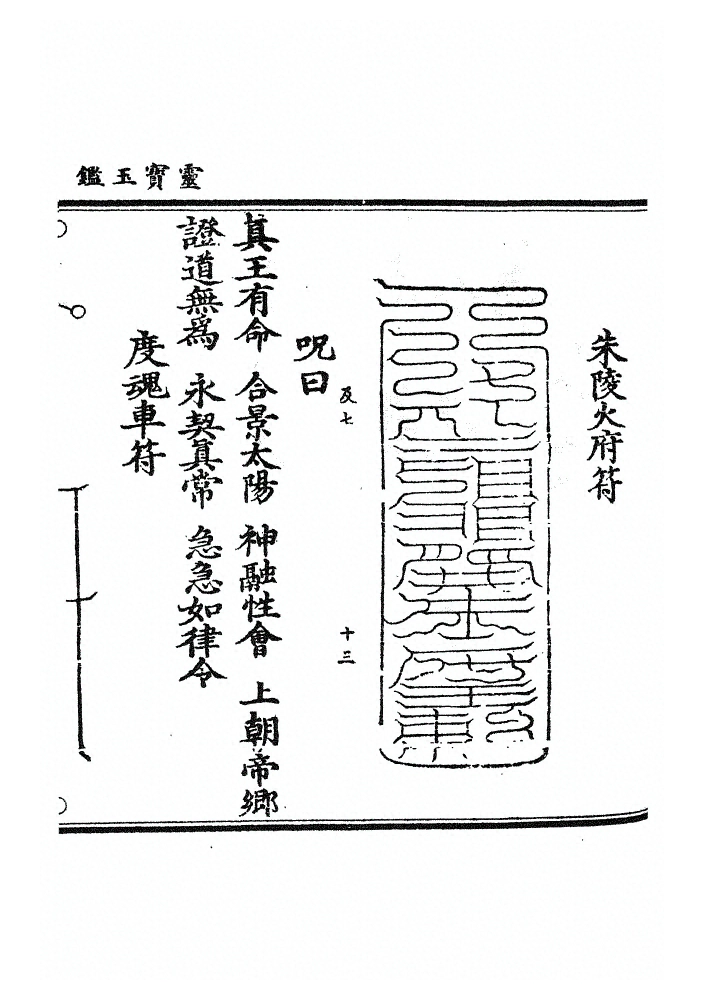 靈寶玉鑑
朱陵火府符
及七
十三
呪曰
真王有命 合景太陽 神融性會 上朝帝鄉
證道無為 永契真常 急急如律令
度魂車符